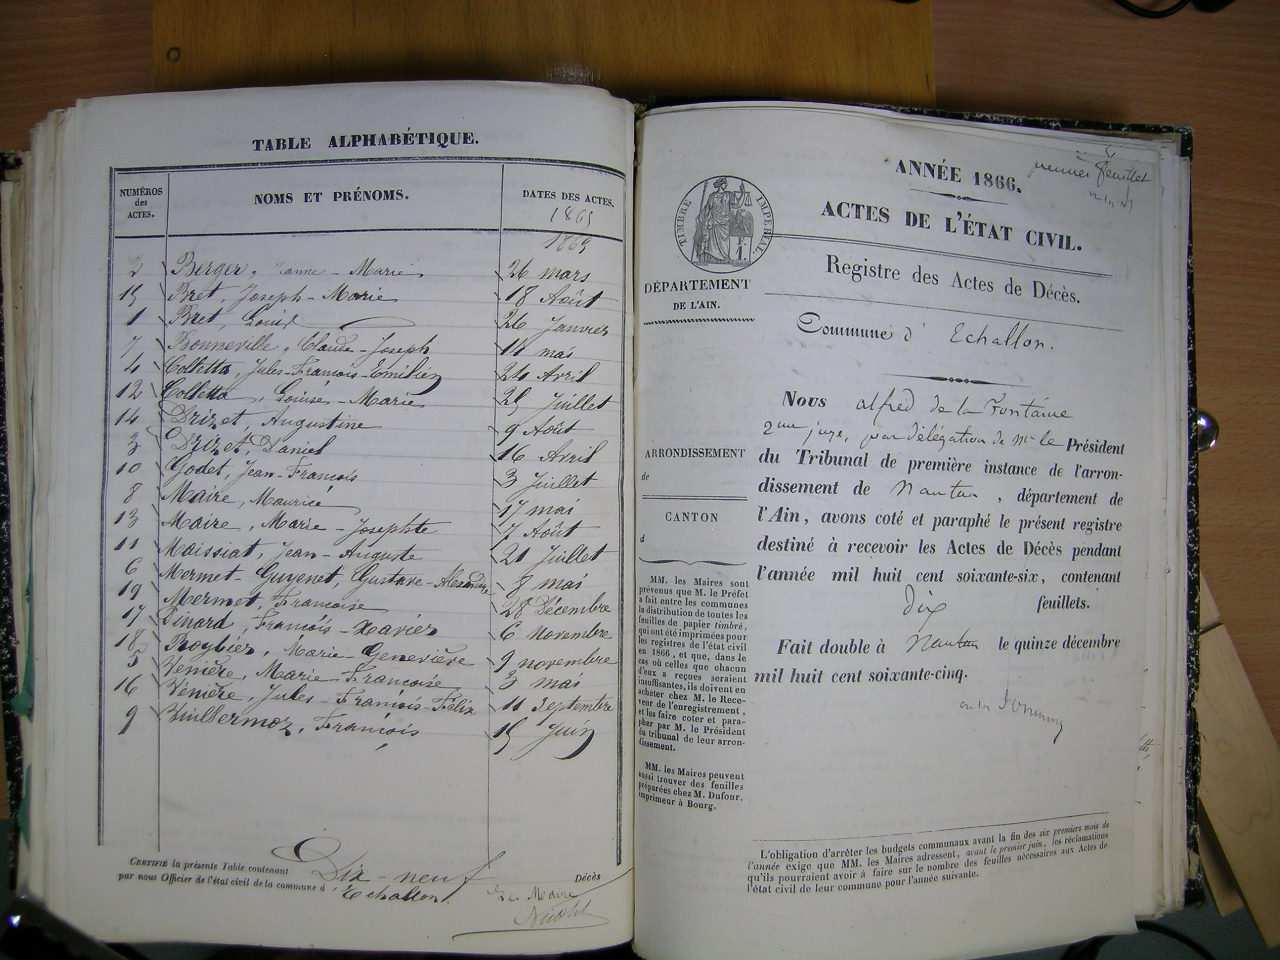 TABLE ALPHABÉTIQUE.
NUMÉROS des ACTES. NOMS ET PRÉNOMS. DATES DES ACTES.
1865
1865
2 Berger, Jeanne-Marie 26 mars
15 Bret, Joseph-Marie 18 Août
1 Bret, Louis 26 Janvier
7 Bonneville, Claude-Joseph 14 mai
4 Colletta, Jules-François-Emilien 24 Avril
12 Colletta, Louise-Marie 25 Juillet
14 Drizet, Augustine 9 Août
3 Drizet, Daniel 16 Avril
10 Godet, Jean-François 3 Juillet
8 Maire, Maurice 17 mai
13 Maire, Marie-Josephte 7 Août
11 Maissiat, Jean-Auguste 21 Juillet
6 Mermet-Guyenet, Gustave-Alexandre 8 mai
19 Mermet, Françoise 28 Décembre
17 Pinard, François-Xavier 6 novembre
18 Roybier, Marie-Geneviève 9 novembre
5 Venière, Marie Françoise 3 mai
16 Venière, Jules-François-Félix 11 Septembre
9 Vuillermoz, François 15 Juin
CERTIFIÉ la présente Table contenant Dix-neuf Décès
par nous Officier de l'état civil de la commune d'Echallon
Le Maire
premier feuillet
ANNÉE 1866.
ACTES DE L'ÉTAT CIVIL.
TIMBRE IMPÉRIAL
Registre des Actes de Décès.
DÉPARTEMENT
DE L'AIN.
Commune d'Echallon.
ARRONDISSEMENT
de
CANTON
d
MM. les Maires sont
prévenus que M. le Préfet
a fait entre les communes
la distribution de toutes les
feuilles de papier timbré,
qui ont été imprimées pour
les registres de l'état civil
en 1866, et que, dans le
cas où celles que chacun
d'eux a reçues seraient
insuffisantes, ils doivent en
acheter chez M. le Rece-
veur de l'enregistrement,
et les faire coter et para-
pher par M. le Président
du tribunal de leur arron-
dissement.
MM. les Maires peuvent
aussi trouver des feuilles
préparées chez M. Dufour,
imprimeur à Bourg.
Nous alfred de la Fontaine
2me juge, par délégation de Mr le Président
du Tribunal de première instance de l'arron-
dissement de Nantua, département de
l'Ain, avons coté et paraphé le présent registre
destiné à recevoir les Actes de Décès pendant
l'année mil huit cent soixante-six, contenant
dix feuillets.
Fait double à Nantua le quinze décembre
mil huit cent soixante-cinq.
L'obligation d'arrêter les budgets communaux avant la fin des six premiers mois de
l'année exige que MM. les Maires adressent, avant le premier juin, les réclamations
qu'ils pourraient avoir à faire sur le nombre des feuilles nécessaires aux Actes de
l'état civil de leur commune pour l'année suivante.